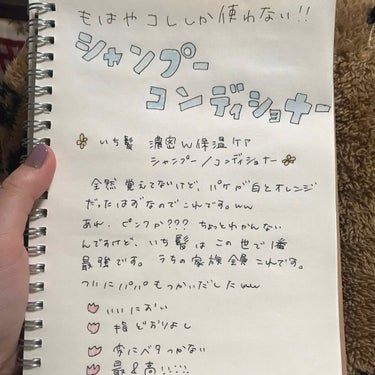 もはやコレしか使わない!!
シャンプー
コンディショナー
いち髪 濃密W保湿ケア
シャンプー/コンディショナー
全然覚えてないけど、パケが白とオレンジ
だったはずなのでこれです。ww
あれ、ピンクか???ちょっとわかんない
んですけど、いち髪はこの世で1番
最強です。うちの家族全員これです。
ついにパパもつかいだしたww
いいにおい
指どおりよし
変にベタつかない
最&高!!!!!